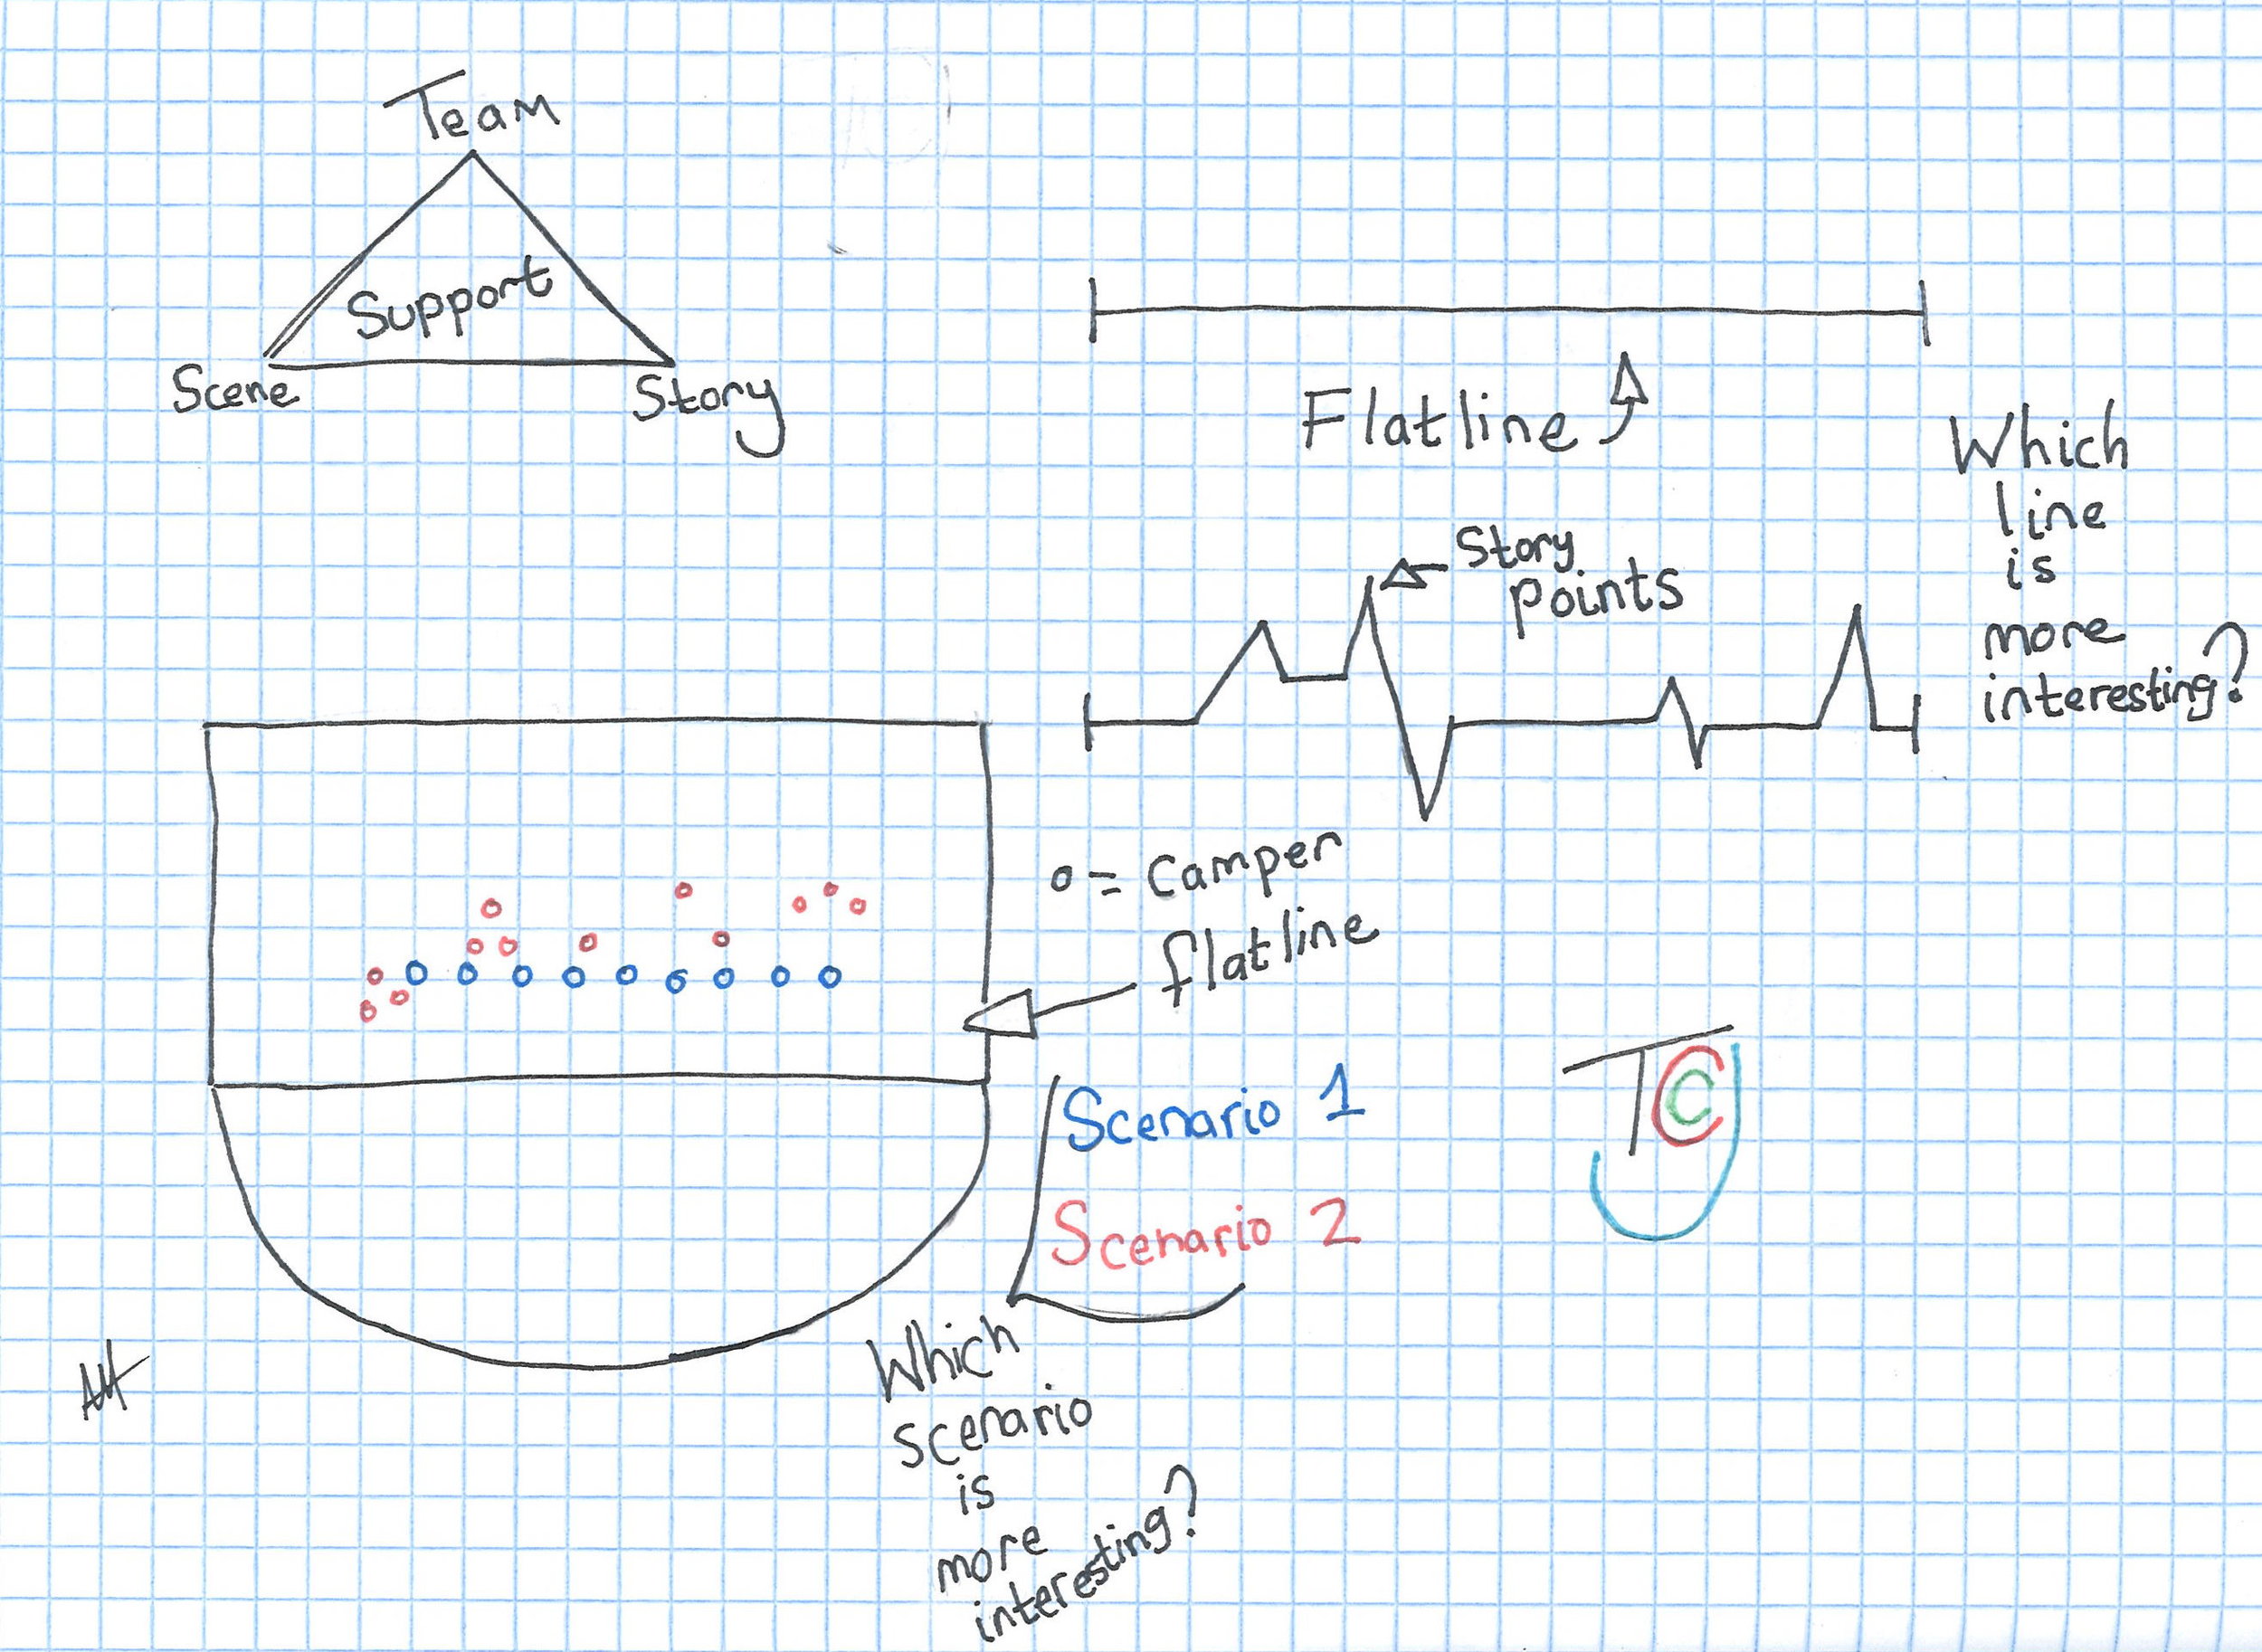 Team
Support
Scene
Story
Flatline
Which
line
is
more
interesting?
Story
points
o = Camper
flatline
Scenario 1
Scenario 2
Which
scenario
is
more
interesting?